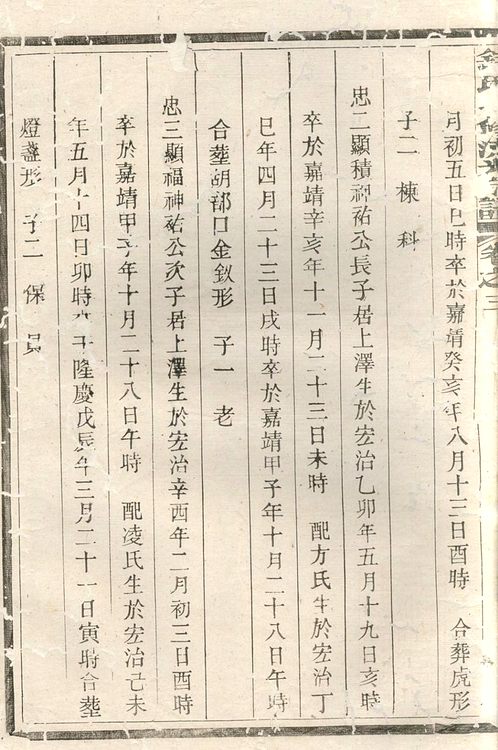 氏 修宗譜 卷之三
月初五日巳時卒於嘉靖癸亥年八月十三日酉時 合葬虎形
子二 棟 科
忠二顯積神祐公長子居上澤生於宏治乙卯年五月十九日亥時
卒於嘉靖辛亥年十一月二十三日未時 配方氏生於宏治丁
巳年四月二十三日戌時卒於嘉靖甲子年十月二十八日午時
合塟胡部口金釵形 子一 老
忠三顯福神祐公次子居上澤生於宏治辛酉年二月初三日酉時
卒於嘉靖甲子年十月二十八日午時 配凌氏生於宏治己未
年五月十四日卯時卒于隆慶戊辰年三月二十一日寅時合塟
燈盞形 子二 保 員